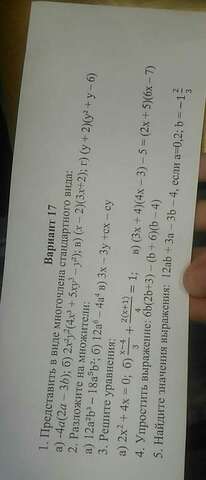 Вариант 17
1. Представить в виде многочлена стандартного вида:
а) -4a(2a – 3b); б) 2x²y²(4x³ + 5xy³ – y²); в) (x – 2)(3x+2); г) (y + 2)(y² + y – 6)
2. Разложите на множители:
а) 12a²b³ – 18a⁵b²; б) 12a⁶ – 4a⁴ в) 3x – 3y +cx – cy
3. Решите уравнения:
а) 2x² + 4x = 0; б) (x–4)/3 + 2(x+1)/4 = 1; в) (3x + 4)(4x – 3) – 5 = (2x + 5)(6x – 7)
4. Упростить выражение: 6b(2b+3) – (b + 6)(b – 4)
5. Найдите значения выражения: 12ab + 3a – 3b – 4, если a=0,2; b = –1 2/3